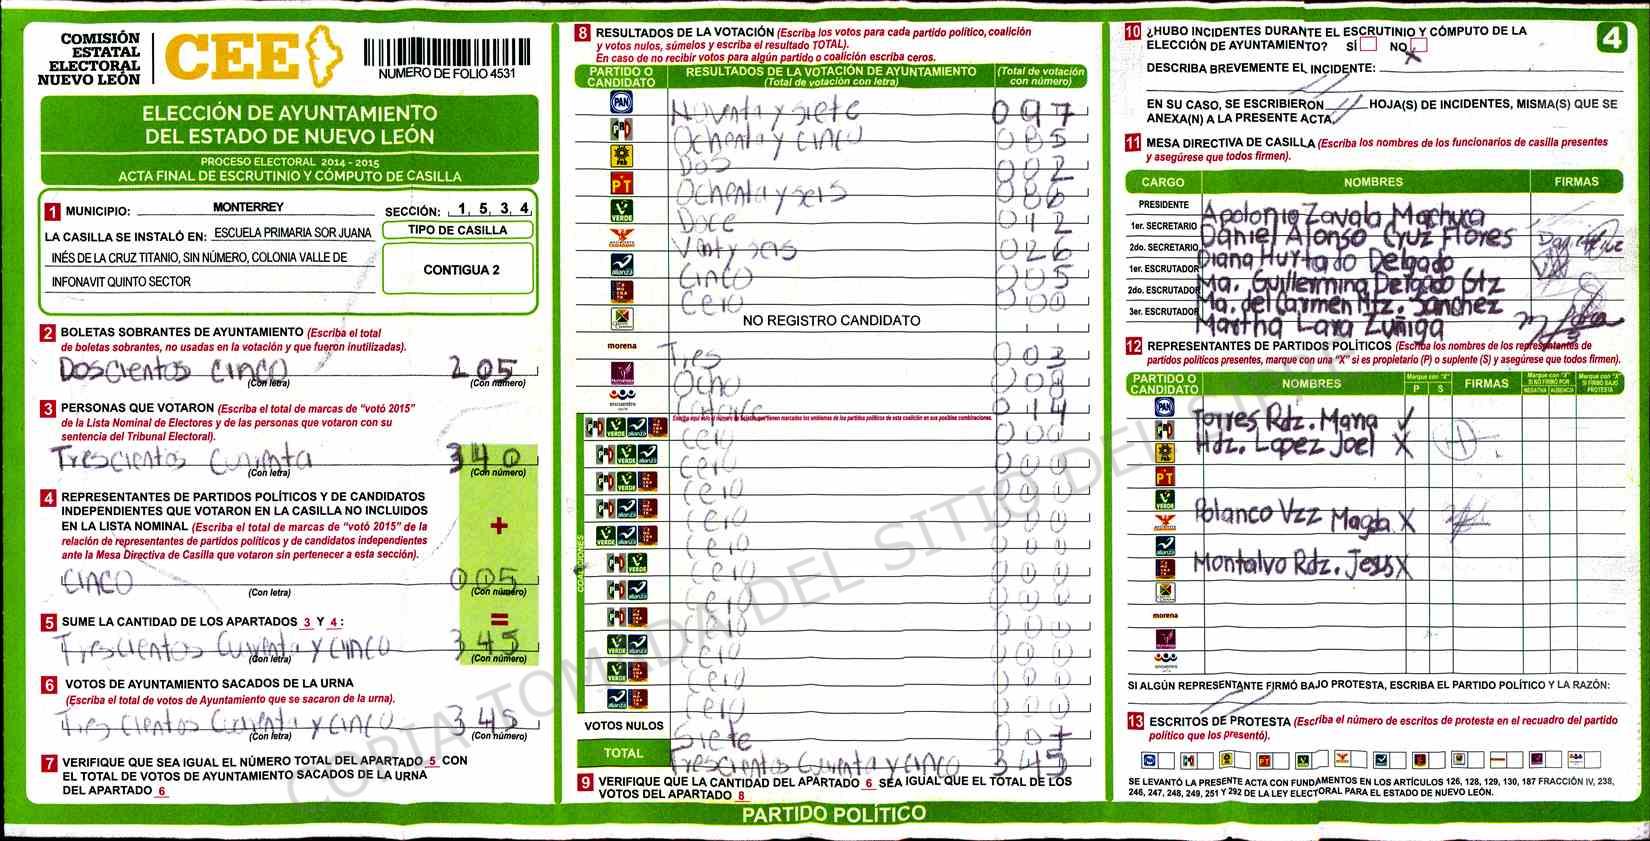 COMISIÓN
ESTATAL
ELECTORAL
NUEVO LEÓN
CEE
NUMERO DE FOLIO 4531
ELECCIÓN DE AYUNTAMIENTO
DEL ESTADO DE NUEVO LEÓN
PROCESO ELECTORAL 2014 - 2015
ACTA FINAL DE ESCRUTINIO Y CÓMPUTO DE CASILLA
1 MUNICIPIO: MONTERREY SECCIÓN: 1, 5, 3, 4,
LA CASILLA SE INSTALÓ EN: ESCUELA PRIMARIA SOR JUANA
INÉS DE LA CRUZ TITANIO, SIN NÚMERO, COLONIA VALLE DE
INFONAVIT QUINTO SECTOR
TIPO DE CASILLA
CONTIGUA 2
2 BOLETAS SOBRANTES DE AYUNTAMIENTO (Escriba el total
de boletas sobrantes, no usadas en la votación y que fueron inutilizadas).
Doscientos cinco 205
(Con letra) (Con número)
3 PERSONAS QUE VOTARON (Escriba el total de marcas de “votó 2015”
de la Lista Nominal de Electores y de las personas que votaron con su
sentencia del Tribunal Electoral).
Trescientos Curenta 340
(Con letra) (Con número)
4 REPRESENTANTES DE PARTIDOS POLÍTICOS Y DE CANDIDATOS
INDEPENDIENTES QUE VOTARON EN LA CASILLA NO INCLUIDOS
EN LA LISTA NOMINAL (Escriba el total de marcas de “votó 2015” de la
relación de representantes de partidos políticos y de candidatos independientes
ante la Mesa Directiva de Casilla que votaron sin pertenecer a esta sección).
+
Cinco 005
(Con letra) (Con número)
=
5 SUME LA CANTIDAD DE LOS APARTADOS 3 Y 4:
Trescientos Curenta y cinco 345
(Con letra) (Con número)
6 VOTOS DE AYUNTAMIENTO SACADOS DE LA URNA
(Escriba el total de votos de Ayuntamiento que se sacaron de la urna).
Tres cientos Curenta y cinco 345
(Con letra) (Con número)
7 VERIFIQUE QUE SEA IGUAL EL NÚMERO TOTAL DEL APARTADO 5 CON
EL TOTAL DE VOTOS DE AYUNTAMIENTO SACADOS DE LA URNA
DEL APARTADO 6
8 RESULTADOS DE LA VOTACIÓN (Escriba los votos para cada partido político, coalición
y votos nulos, súmelos y escriba el resultado TOTAL).
En caso de no recibir votos para algún partido o coalición escriba ceros.
PARTIDO O CANDIDATO
RESULTADOS DE LA VOTACIÓN DE AYUNTAMIENTO
(Total de votación con letra)
(Total de votación con número)
PAN Noventa y siete 097
PRI Ochenta y cinco 085
PRD Dos 002
PT Ochenta y seis 086
VERDE Doce 012
Vinty seis 026
alianza Cinco 005
Cero 000
NO REGISTRO CANDIDATO
morena Tres 003
Ocho 008
encuentro 014
COALICIONES
Cero 000
Cero 000
Cero 000
Cero 000
Cero 000
Cero 000
Cero 000
Cero 000
Cero 000
Cero 000
Cero 000
VOTOS NULOS Siete 007
TOTAL Trescientos Curenta y cinco 345
9 VERIFIQUE QUE LA CANTIDAD DEL APARTADO 6 SEA IGUAL QUE EL TOTAL DE LOS
VOTOS DEL APARTADO 8
PARTIDO POLÍTICO
10 ¿HUBO INCIDENTES DURANTE EL ESCRUTINIO Y CÓMPUTO DE LA
ELECCIÓN DE AYUNTAMIENTO? SÍ NO X
4
DESCRIBA BREVEMENTE EL INCIDENTE:
EN SU CASO, SE ESCRIBIERON HOJA(S) DE INCIDENTES, MISMA(S) QUE SE
ANEXA(N) A LA PRESENTE ACTA.
11 MESA DIRECTIVA DE CASILLA (Escriba los nombres de los funcionarios de casilla presentes
y asegúrese que todos firmen).
CARGO NOMBRES FIRMAS
PRESIDENTE Apolonio Zavala Machuca
1er. SECRETARIO Daniel Afonso Cruz Flores
2do. SECRETARIO Diana Hurtado Delgado
1er. ESCRUTADOR Ma. Guillermina Delgado Gtz
2do. ESCRUTADOR Ma. del Carmen Mtz. Sanchez
3er. ESCRUTADOR Martha Lara Zuñiga
12 REPRESENTANTES DE PARTIDOS POLÍTICOS (Escriba los nombres de los representantes de
partidos políticos presentes, marque con una “X” si es propietario (P) o suplente (S) y asegúrese que todos firmen).
PARTIDO O CANDIDATO NOMBRES Marque con "X" P S FIRMAS Marque con "X" SI NO FIRMÓ POR NEGATIVA AUSENCIA Marque con "X" SI FIRMÓ BAJO PROTESTA
PAN Torres Rdz. Maria
PRI Hdz. Lopez Joel X
PRD
PT
VERDE Polanco Vzz Magda X
alianza Montalvo Rdz. Jesus X
morena
encuentro
SI ALGÚN REPRESENTANTE FIRMÓ BAJO PROTESTA, ESCRIBA EL PARTIDO POLÍTICO Y LA RAZÓN:
13 ESCRITOS DE PROTESTA (Escriba el número de escritos de protesta en el recuadro del partido
político que los presentó).
SE LEVANTÓ LA PRESENTE ACTA CON FUNDAMENTOS EN LOS ARTÍCULOS 126, 128, 129, 130, 187 FRACCIÓN IV, 238,
246, 247, 248, 249, 251 Y 292 DE LA LEY ELECTORAL PARA EL ESTADO DE NUEVO LEÓN.
COPIA TOMADA DEL SITIO DEL